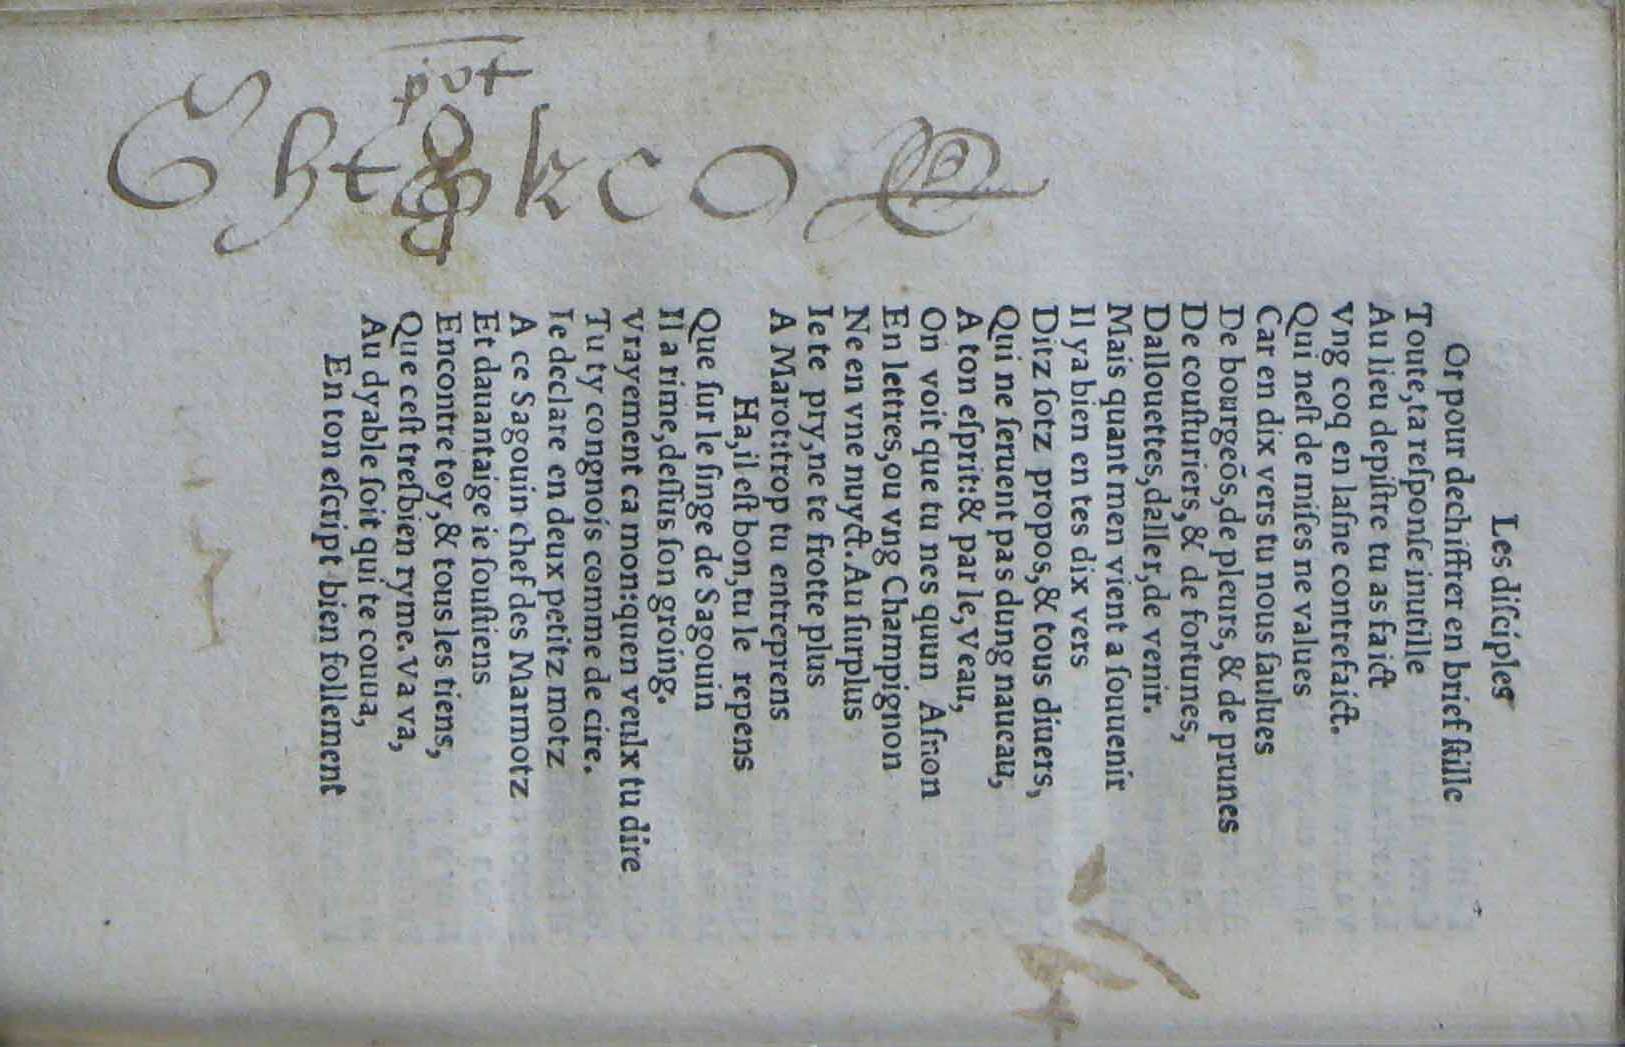 Les diſciples
Or pour dechiffrer en brief ſtille
Toute, ta reſponſe inutille
Au lieu depiſtre tu as faict
Vng coq en laſne contrefaict.
Qui neſt de miſes ne values
Car en dix vers tu nous ſaulues
De bourgeõs, de pleurs, & de prunes
De couſturiers, & de fortunes,
Dallouettes, daller, de venir.
Mais quant men vient a ſouuenir
Il ya bien en tes dix vers
Ditz ſotz propos, & tous diuers,
Qui ne ſeruent pas dung naueau,
A ton eſprit: & par le, Veau,
On voit que tu nes quun Aſnon
En lettres, ou vng Champignon
Ne en vne nuyct. Au ſurplus
Ie te pry, ne te frotte plus
A Marot: trop tu entreprens
Ha, il eſt bon, tu le repens
Que ſur le ſinge de Sagouin
Il a rime, deſſus ſon groing.
Vrayement ca mon: quen veulx tu dire
Tu ty congnois comme de cire.
Ie declare en deux petitz motz
A ce Sagouin chef des Marmotz
Et dauantaige ie ſouſtiens
Encontre toy, & tous les tiens,
Que ceſt treſbien ryme. Va va,
Au dyable ſoit qui te couua,
En ton eſcript bien follement
pot